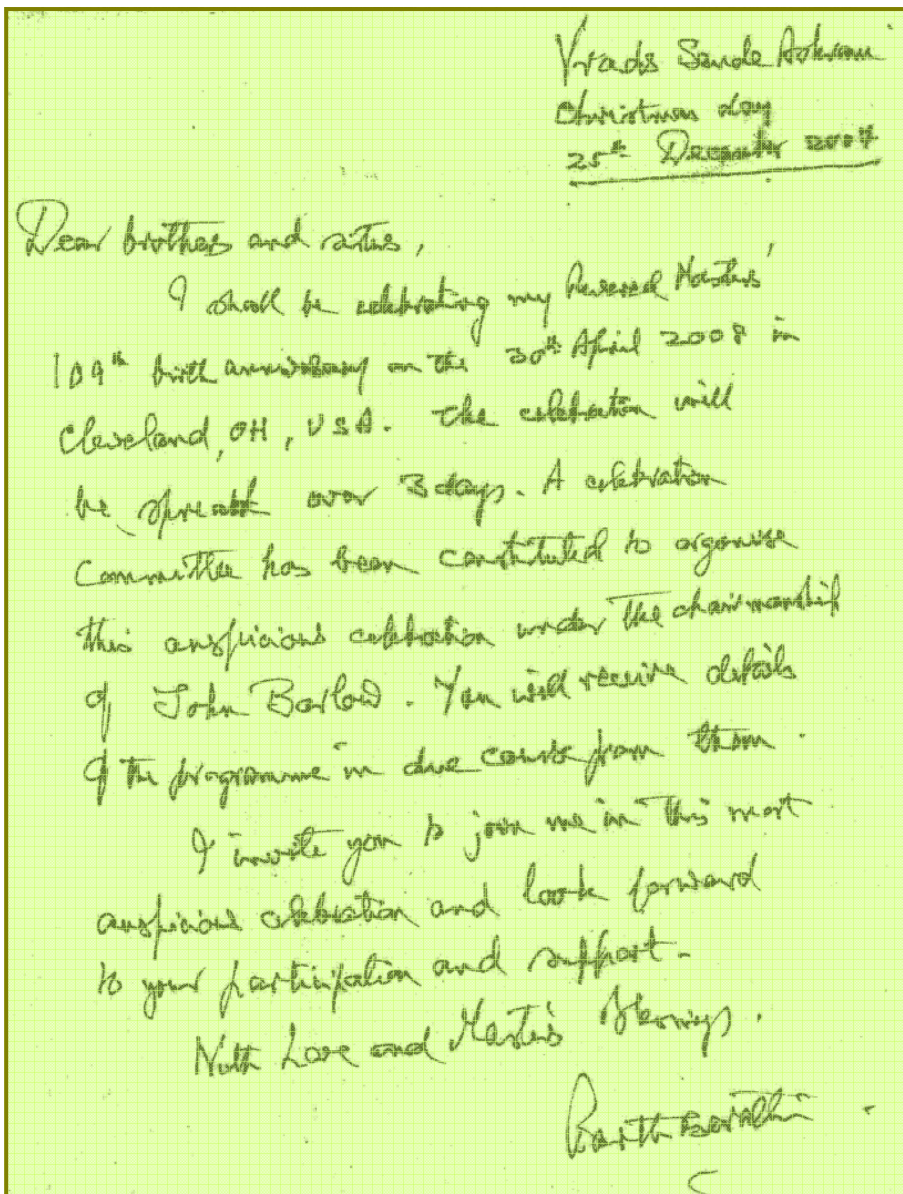 Vrads Sande Ashram
Christmas day
25th December 2007
Dear brothers and sisters,
I shall be celebrating my Revered Master's
109th birth anniversary on the 30th April 2008 in
Cleveland, OH, USA. The celebration will
be spread over 3 days. A celebration
committee has been constituted to organise
this auspicious celebration under the chairmanship
of John Barlow. You will receive details
of the programme in due course from them.
I invite you to join me in this most
auspicious celebration and look forward
to your participation and support.
With Love and Master's blessings.